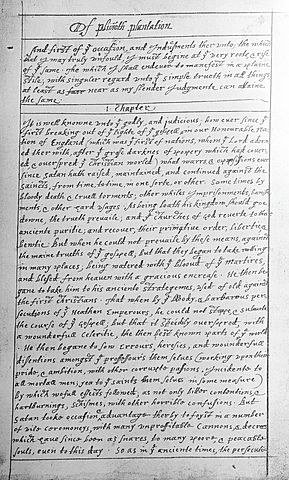 Of plimoth plantation.
And first of y^e occasion, and Indusments ther unto; the which
that I may truly unfould, I must begine at y^e very roote, & rise
of y^e same. The which I shall endevor to manefest in a plaine
stile; with singuler regard unto y^e simple trueth in all things,
at least as near as my slender Judgmente can attaine
the same.
1. Chapter
It is well knowne unto y^e godly, and judicious; how ever since y^e
first breaking out of y^e lighte of y^e gospell, in our Honourable Na-
tion of England (which was y^e first of nations, whom y^e Lord ador-
ned ther with, affter y^t grose darknes of popery which had cover-
ed & overspred y^e Christian world) what warrs, & opposissions ever
since Satan hath raised, maintained, and continued against the
Saincts, from time, to time, in one sorte, or other. Some times by
bloody death & cruell torments; other whiles Imprisonments, banish-
ments, & other hard usages. As being loath his kingdom should goe
downe, the trueth prevaile; and y^e Churches of god reverte to their
anciente puritie; and recover, their primative order, libertie, &
bewtie. But when he could not prevaile by these means, against
the maine trueths of y^e gospell; but that they began to take rooting
in many places; being watered with y^e blood of y^e Martires,
and blessed from heaven with a gracious encrease. He then be-
gane to take him to his anciente strategemes, used of old against
the first Christians. That when by y^e bloody, & barbarous per-
secutions of y^e Heathen Emperours, he could not stoppe, & subverte
the course of y^e gospell; but that it speedily overspred, with
a wounderfull Celeritie, the then best known parts of y^e world
He then begane to sow Errours, heresies, and wounderfull
disentions amongst y^e professours them selves (working upon their
pride, & ambition, with other corrupte passions, Incidente to
all mortall men; yea to y^e saints them selves in some measure)
by which wofull effects followed; as not only bitter contentions, &
hartburnings, schismes, with other horrible confusions. But
Satan tooke occasion & advantage therby to foyst in a number
of vile ceremoneys, with many unprofitable Cannons, & decrees
which have since been as snares, to many poore, & peaceable
souls, even to this day. So as in y^e anciente times, the persecuti-